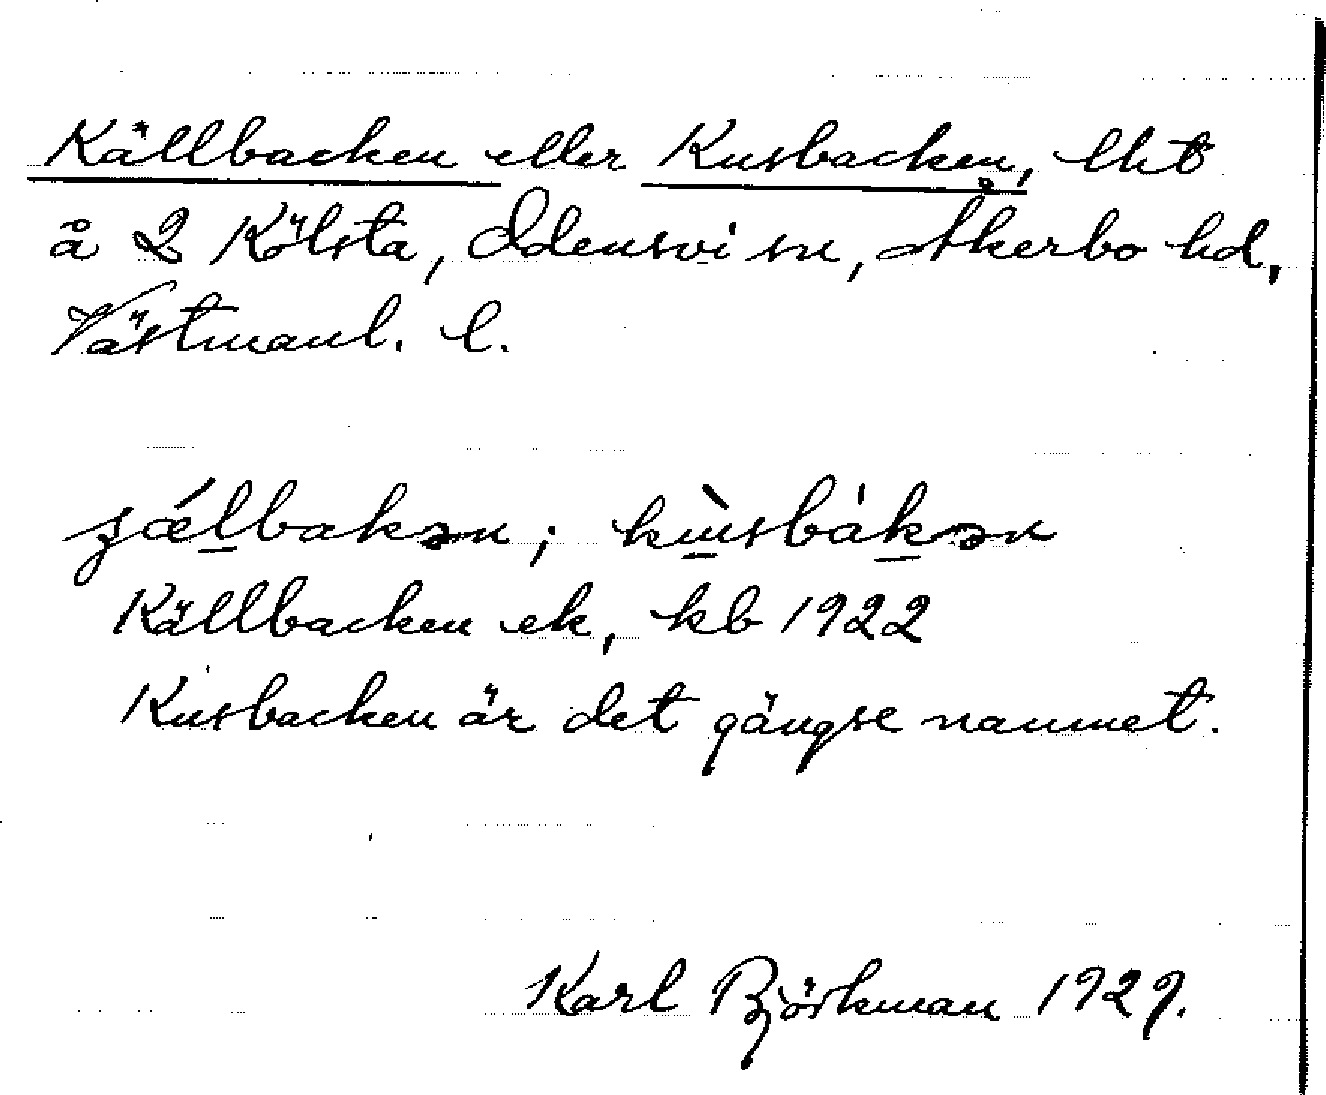 Källbacken eller Kusbacken, lht
å 2 Kölsta, Odensvi sn, Åkerbo hd,
Västmanl. l.
ʂǽl̲bakən; ku̲̇̀sbȧk̲ən
Källbacken ek, kb 1922
Kusbacken är det gängse namnet.
Karl Björkman 1929.